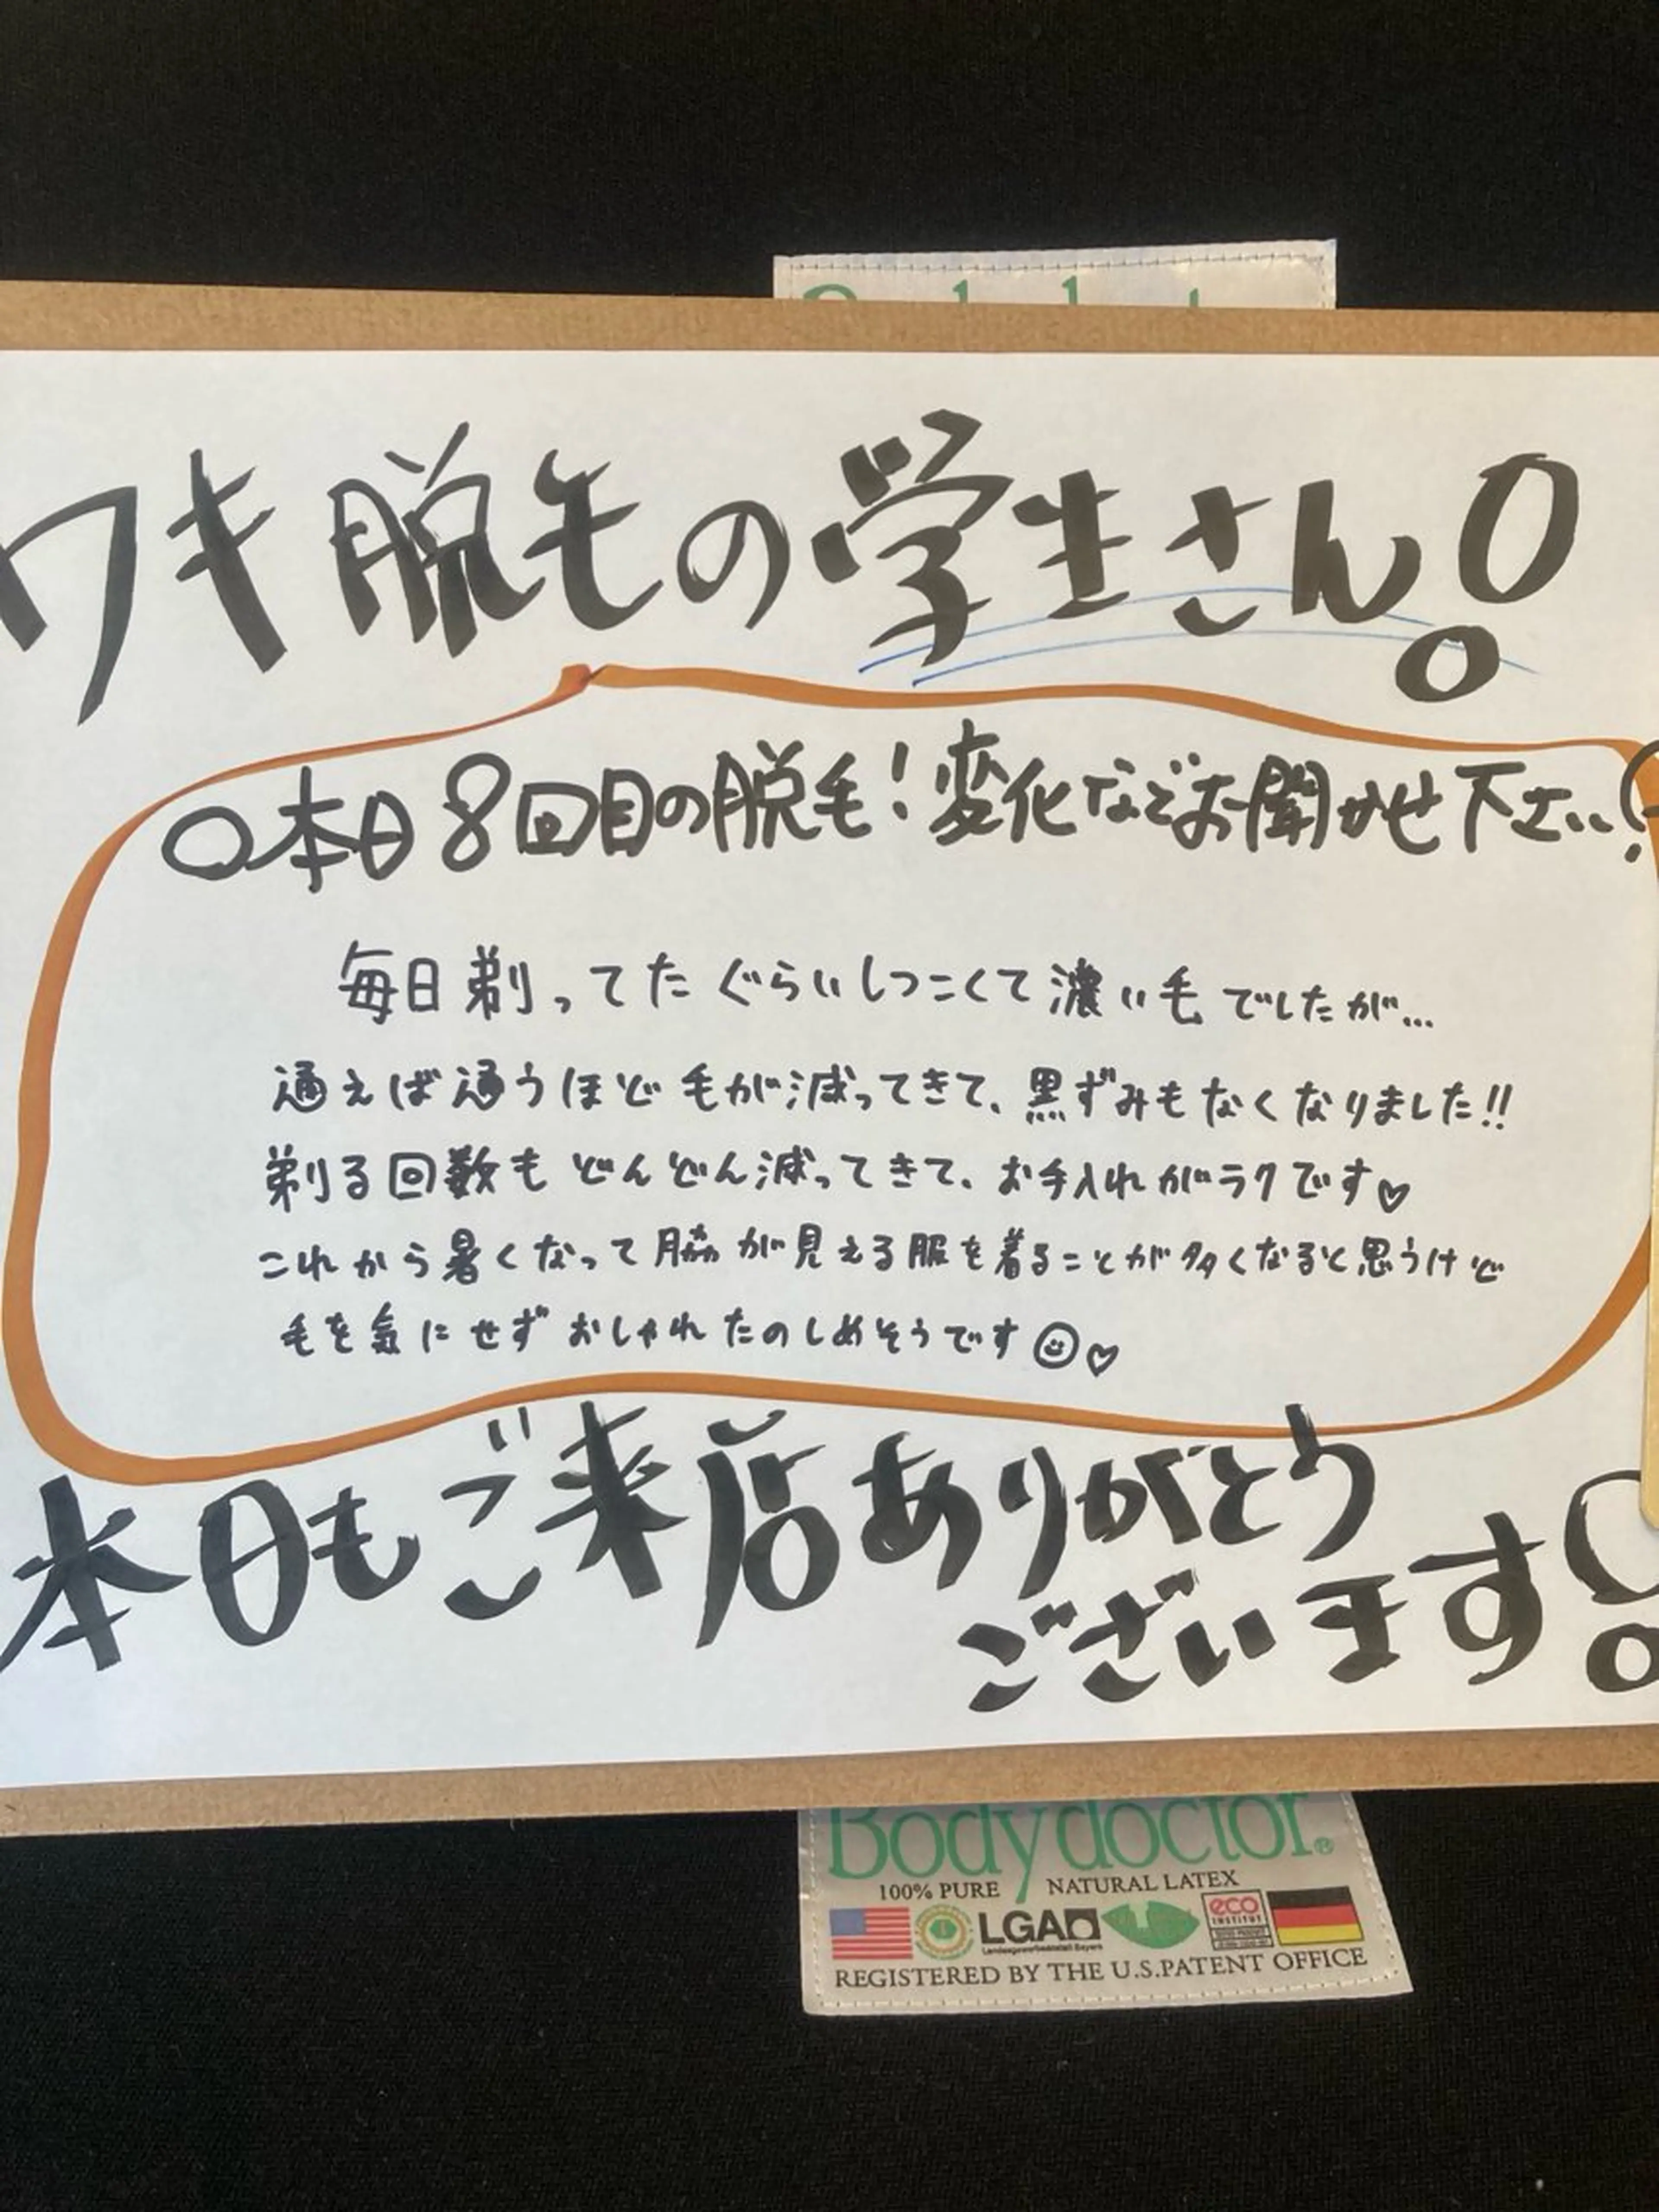 ワキ脱毛の学生さん!
○本日8回目の脱毛!変化などお聞かせ下さい!
毎日剃ってたぐらいしつこくて濃い毛でしたが...
通えば通うほど毛が減ってきて、黒ずみもなくなりました!!
剃る回数もどんどん減ってきて、お手入れがラクです♡
これから暑くなって脇が見える服を着ることが多くなると思うけど
毛を気にせずおしゃれたのしめそうです☺♡
本日もご来店ありがとう
ございます!
Body doctor®
100% PURE NATURAL LATEX
LGA
eco
INSTITUT
REGISTERED BY THE U.S.PATENT OFFICE